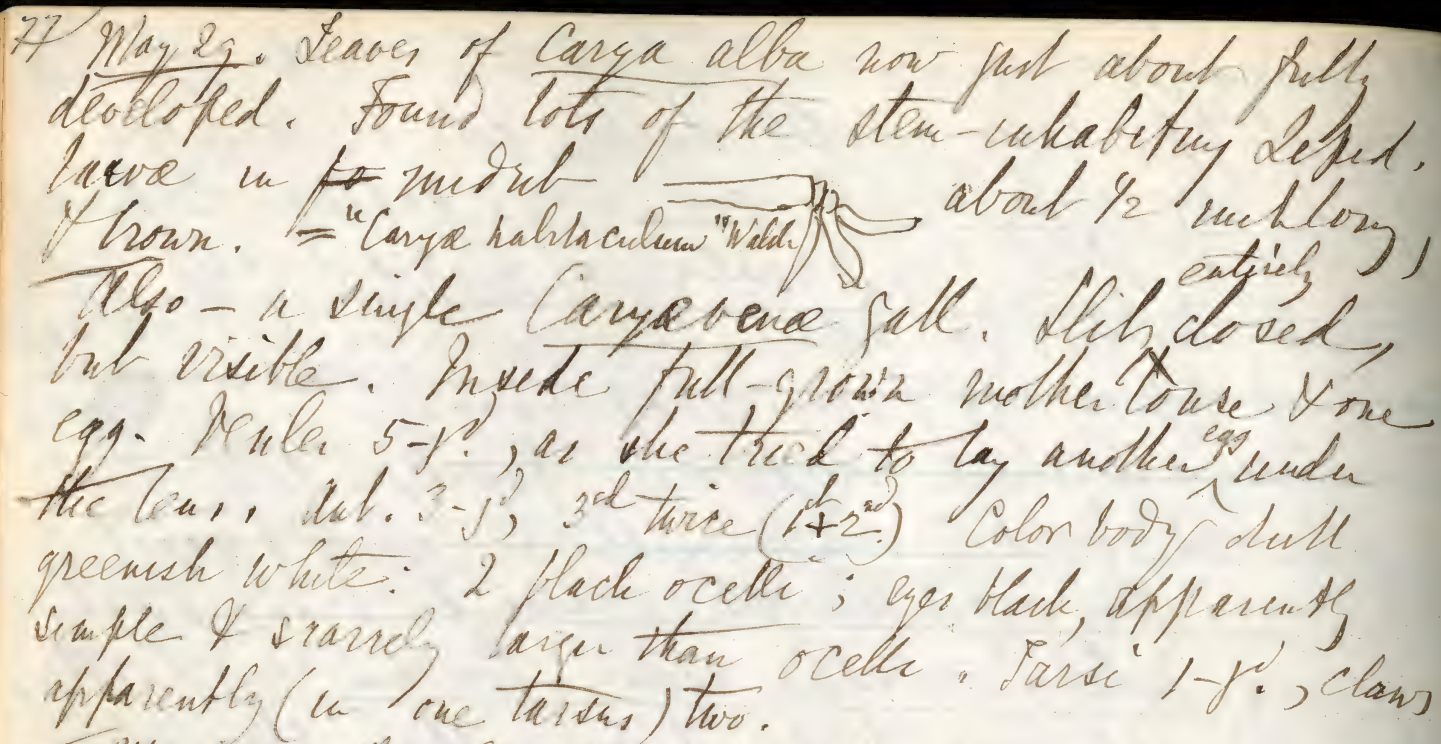 77 May 29. Leaves of Carya alba now just about fully
developed. Found lots of the stem-inhabiting Lepid.
larvæ in midrib about 1/2 inch long,
& brown. = "Caryæ Walsh
Also - a single Caryæ venæ gall. Slit entirely closed,
but visible. Inside full-grown mother louse & one
egg. 5-j'd., as she tried to lay another egg under
the lens. Ant. 3-j'd, 3rd twice (1st + 2nd) Color body dull
greenish white. 2 black ocelli; eyes black, apparently
simple & scarcely larger than ocelli. Tarsi 1-j'd., claws
apparently (in one tarsus) two.